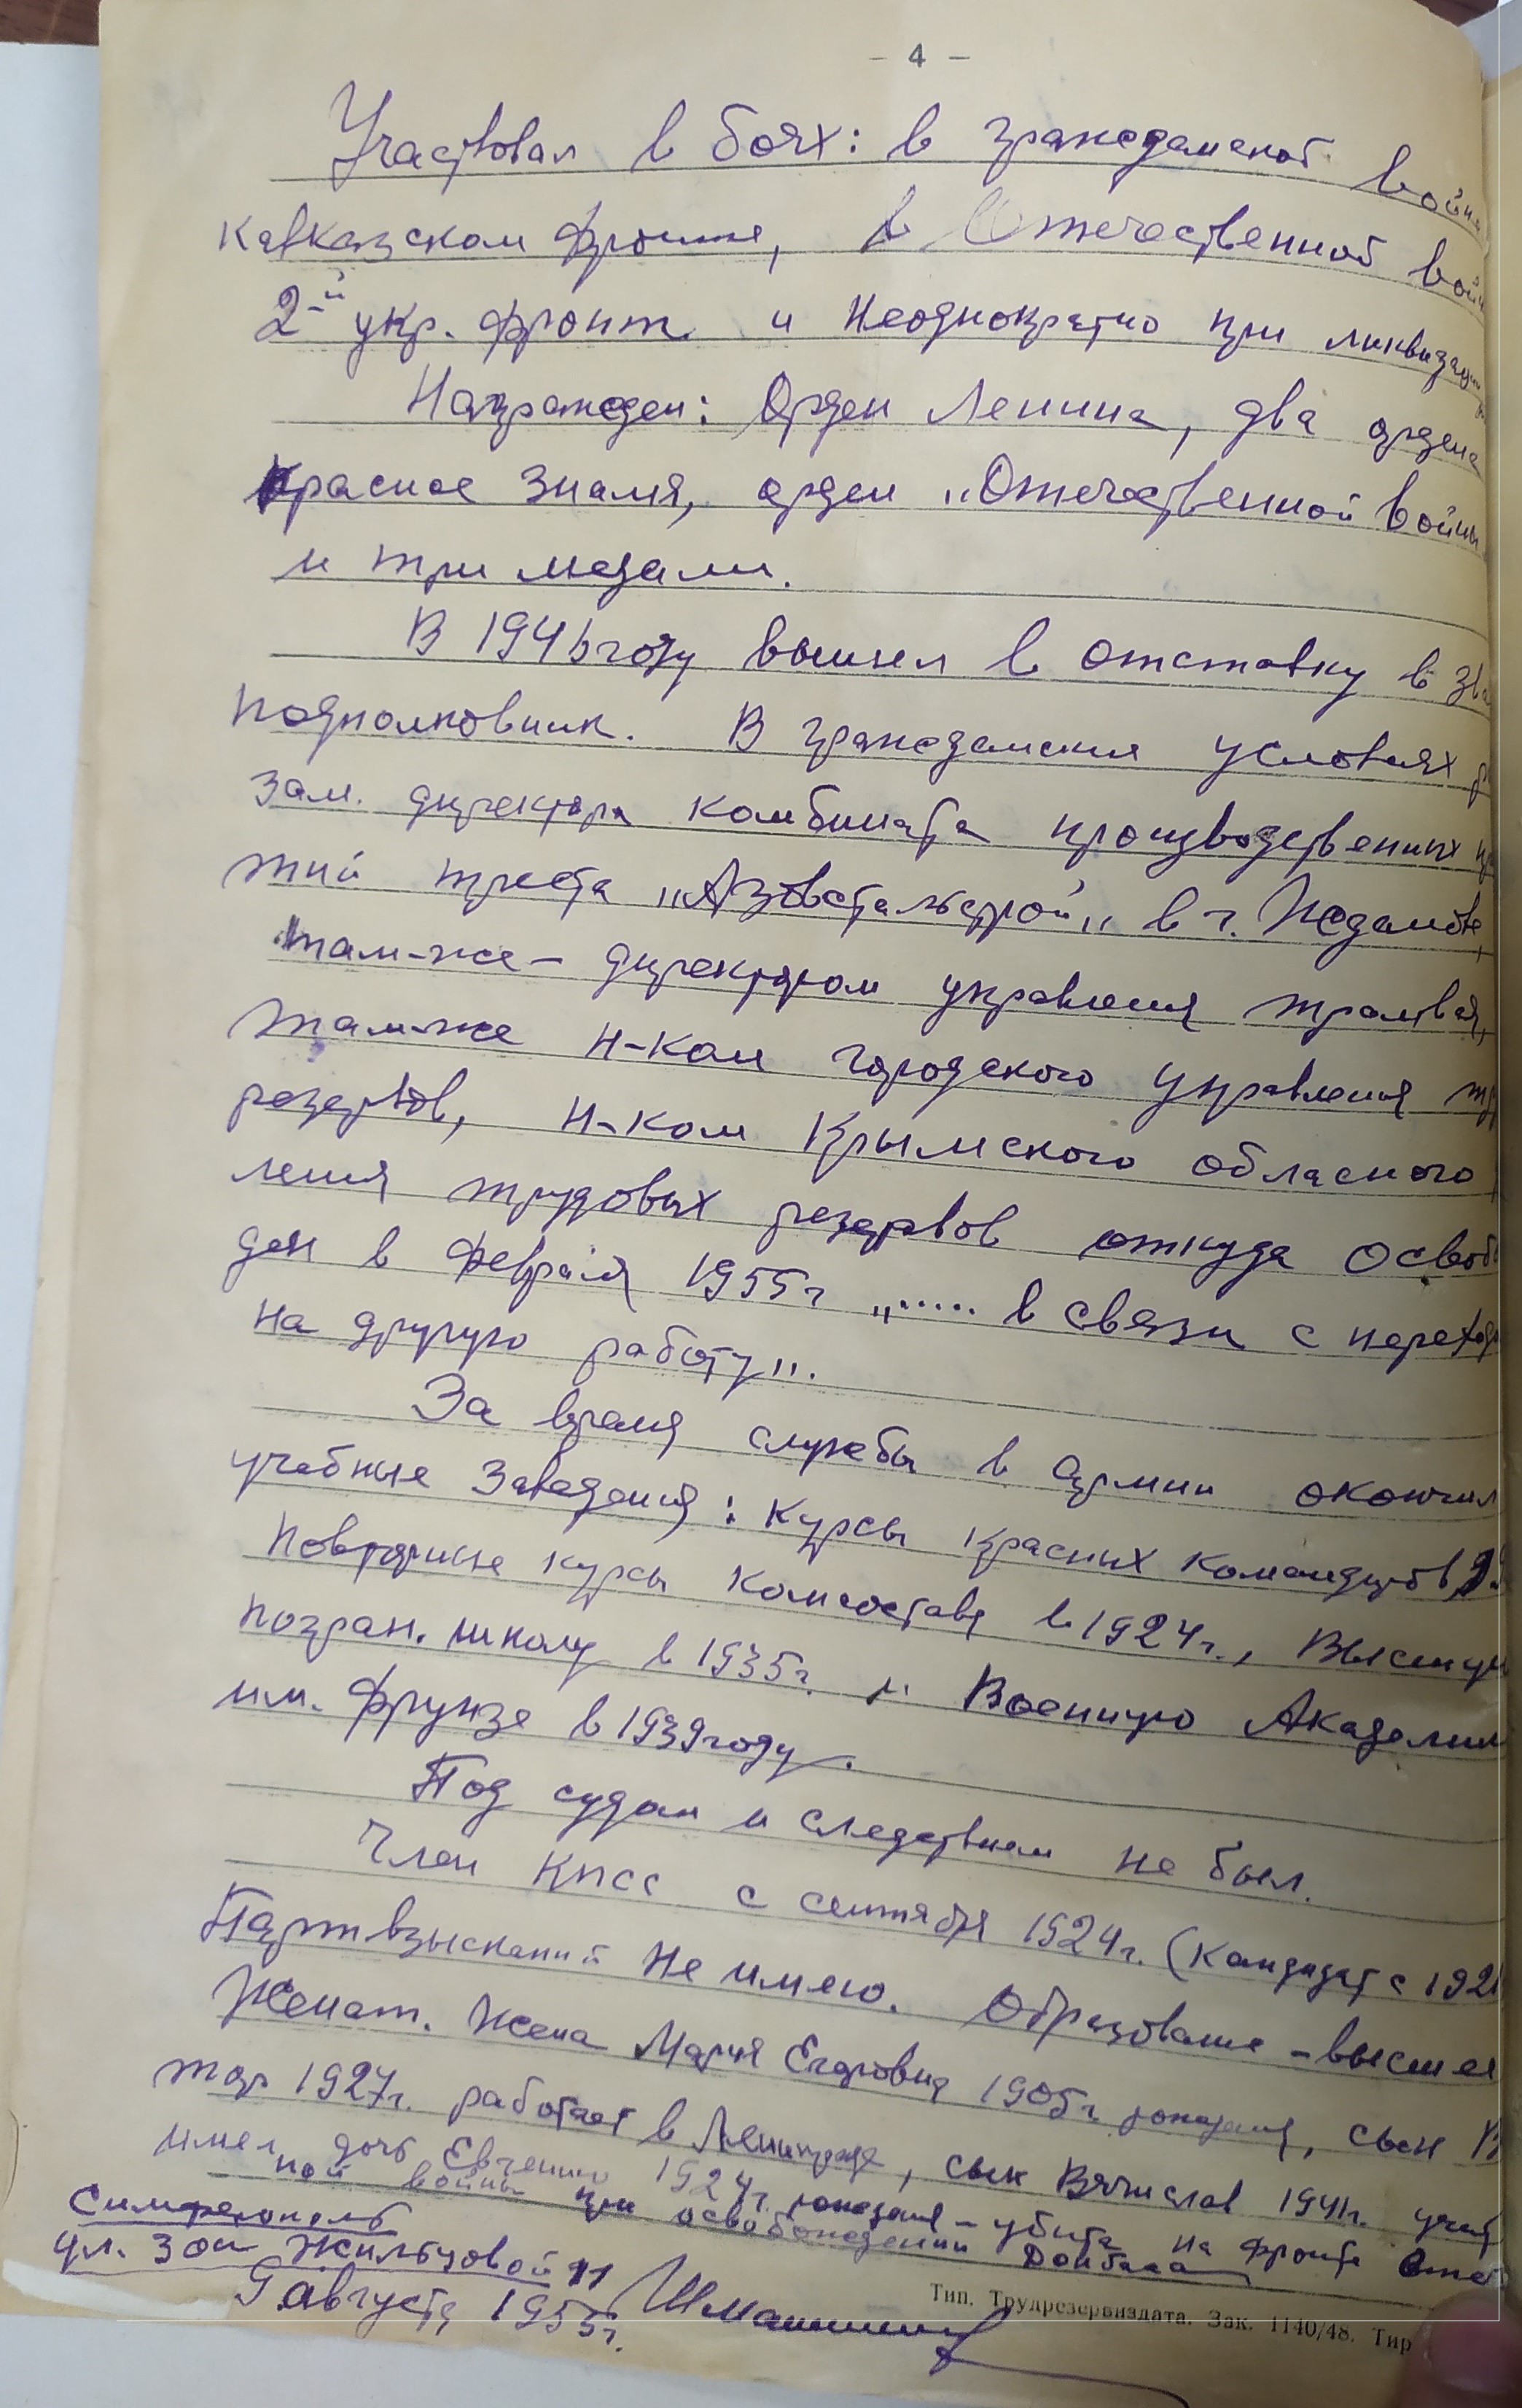 - 4 -
Участвовал в боях: в гражданской войне
Кавказском фронте, в Отечественной вой
2-й укр. фронт и неоднократно при ликвидации
Награжден: Орден Ленина, два ордена
Красное Знамя, орден „Отечественной войны
и три медали.
В 1946 году вышел в отставку в зва
подполковник. В гражданских условиях р
зам. директора комбината производственных пр
тий треста „Азовстальстрой„ в г. Жданове,
там-же – директором управления трамвая,
там-же н-ком городского управления тр
резервов, н-ком Крымского обласного
ления трудовых резервов откуда освоб
ден в феврале 1955г „..... в связи с переход
на другую работу„.
За время службы в армии окончил
учебные заведения: Курсы красных командиров
повторные курсы комсостава в 1924г., Высшую
погран. школу в 1935г. и Военную Академию
им. Фрунзе в 1939 году.
Под судом и следствием не был.
Член КПСС с сентября 1924г. (кандидат с 192
Партвзысканий не имею. Образование – высшее
Женат. Жена Мария Егоровна 1905г. рождения, сын В
тор 1927г. работает в Ленинграде, сын Вячислав 1941г. учит
имел дочь Евгению 1924г. рождения – убита на фронте Отеч
ной войны при освобождении Донбаса
Симферополь
ул. Зои Жильцовой 11
9 августа 1955г.
Тип. Трудрезервиздата. Зак. 1140/48. Тир